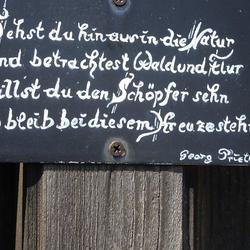 ehst du hinaus in die Natur
nd betrachtest Wald und Flur
illst du den Schöpfer sehn
bleib bei diesem Kreuze stehn
Georg Priet